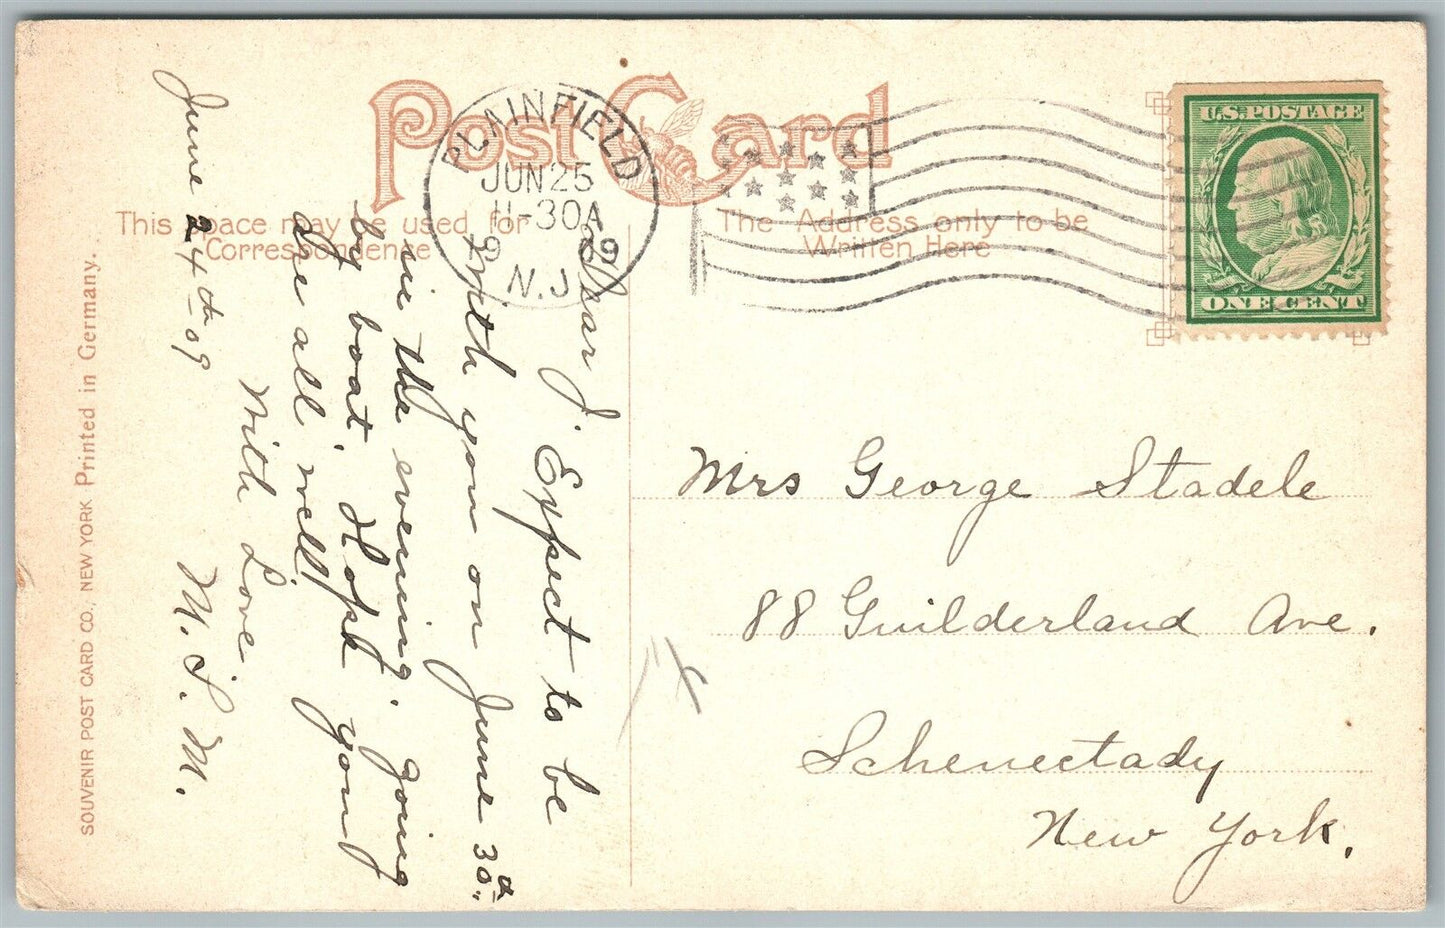 Post Card
PLAINFIELD
JUN 25
11-30A
1909
N.J.
U.S. POSTAGE
ONE CENT
This space may be used for
Correspondence
The Address only to be
Written Here
SOUVENIR POST CARD CO., NEW YORK Printed in Germany.
June 24th 09
Dear J.
Expect to be
with you on June 30th,
in the evening. going
by boat. Hope you
are all well.
With Love
M. L. M.
Mrs George Stadele
88 Guilderland Ave.
Schenectady
New York.